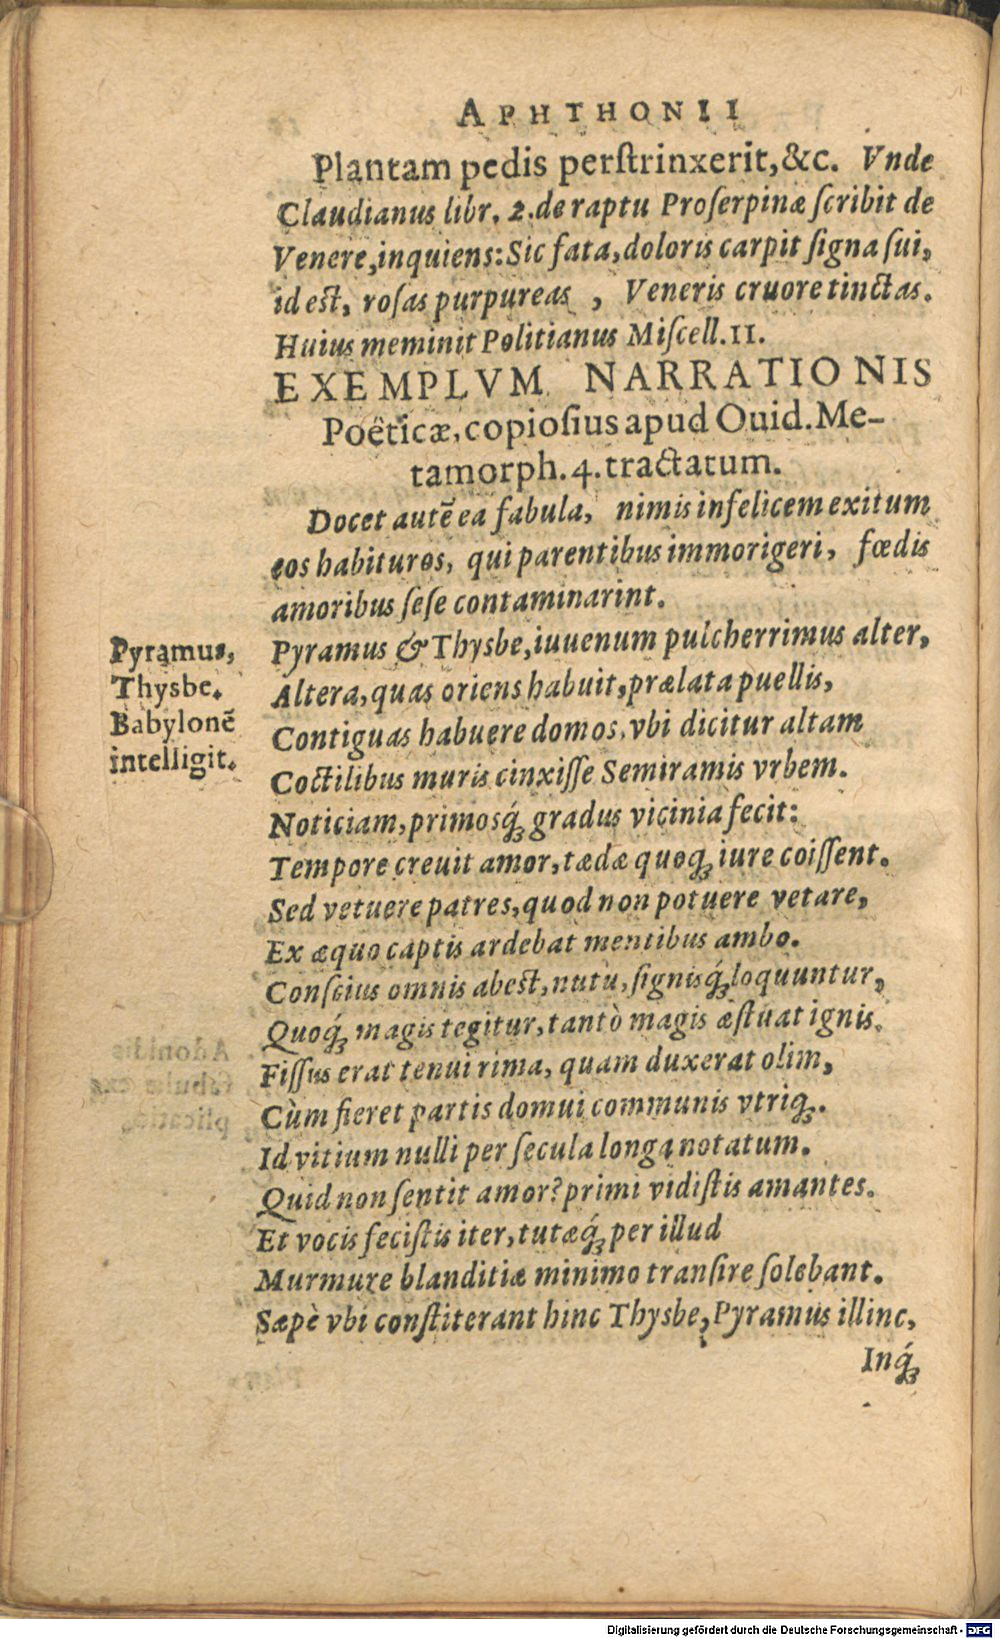 APHTHONII
Plantam pedis perstrinxerit, &c. Vnde
Claudianus libr. 2. de raptu Proserpinæ ſcribit de
Venere, inquiens: Sic fata, doloris carpit ſigna ſui,
id est, roſas purpureas , Veneris cruore tinctas.
Huius meminit Politianus Miſcell. 11.
EXEMPLVM NARRATIONIS
Poëticæ, copioſius apud Ouid. Me-
tamorph. 4. tractatum.
Docet autē ea fabula, nimis infelicem exitum
eos habituros, qui parentibus immorigeri, fœdis
amoribus ſeſe contaminarint.
Pyramus,
Thysbe.
Babylonē
intelligit.
Pyramus & Thysbe, iuuenum pulcherrimus alter,
Altera, quas oriens habuit, prælata puellis,
Contiguas habuere domos, vbi dicitur altam
Coctilibus muris cinxiſſe Semiramis vrbem.
Noticiam, primosq́ꝫ gradus vicinia fecit:
Tempore creuit amor, tædæ quoqꝫ iure coiſſent.
Sed vetuere patres, quod non potuere vetare,
Ex æquo captis ardebat mentibus ambo.
Conſcius omnis abest, nutu, ſignisq́ꝫ loquuntur,
Quoq́ꝫ magis tegitur, tantò magis æſtuat ignis.
Fiſſus erat tenui rima, quam duxerat olim,
Cùm fieret partis domui communis vtriqꝫ.
Id vitium nulli per ſecula longa notatum.
Quid non ſentit amor? primi vidiſtis amantes.
Et vocis feciſtis iter, tutæq́ꝫ per illud
Murmure blanditiæ minimo tranſire ſolebant.
Sæpè vbi conſtiterant hinc Thysbe, Pyramus illinc,
Inq́ꝫ
Digitalisierung gefördert durch die Deutsche Forschungsgemeinschaft - DFG